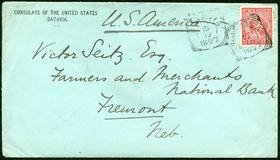 CONSULATE OF THE UNITED STATES
BATAVIA.
U.S. America
Victor Seitz, Esq.
Farmers and Merchants
National Bank
Fremont
Neb.